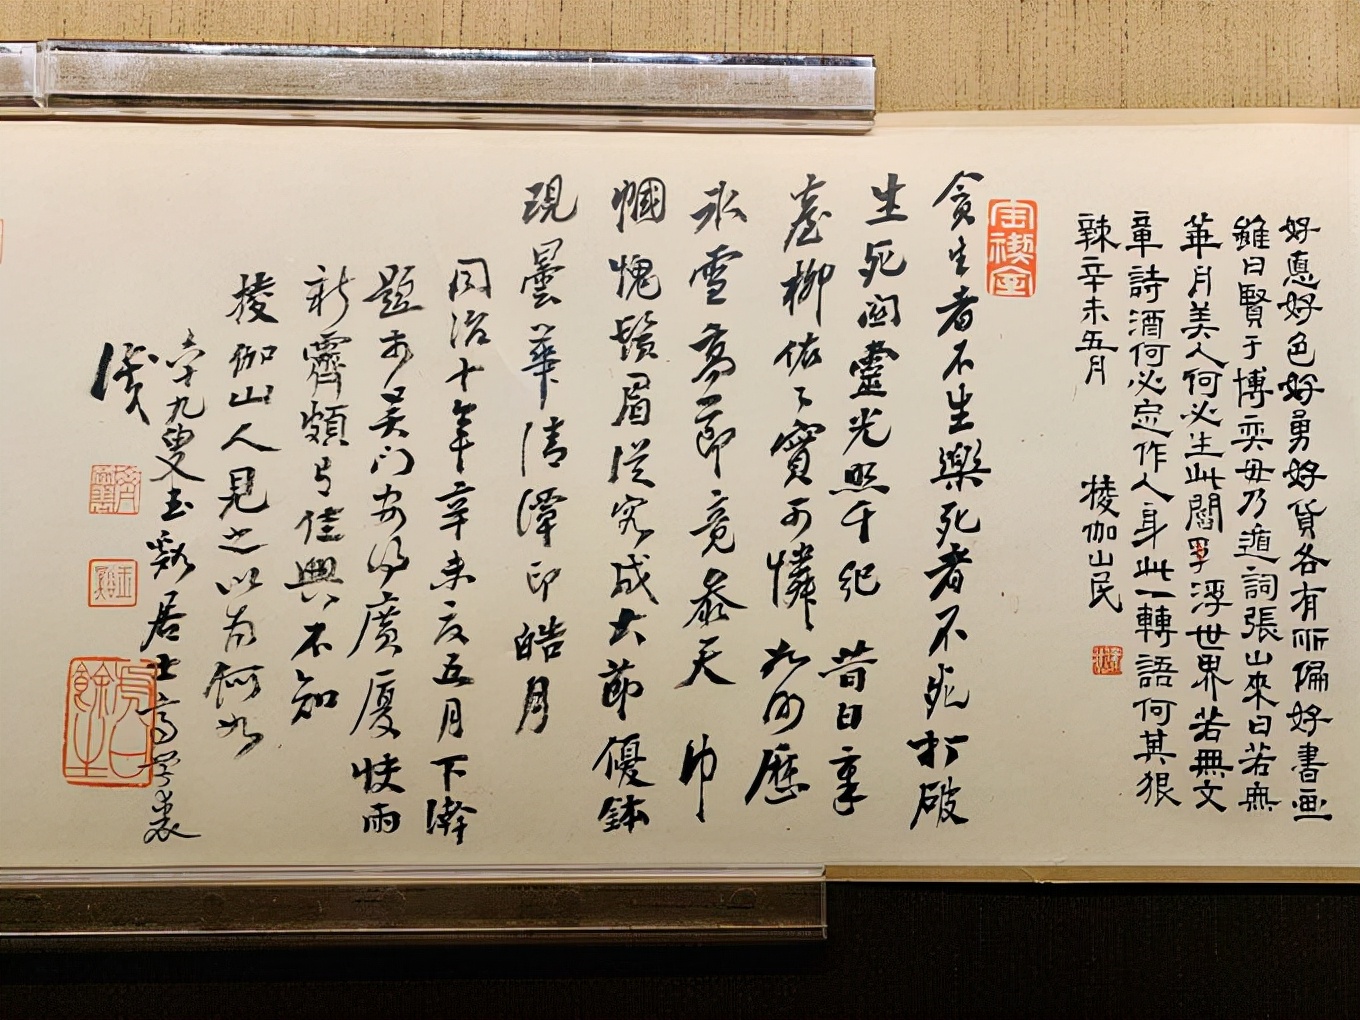 好惪好色好勇好貨各有所偏好書画
雖曰賢于博奕毋乃遁詞張山來曰若無
華月美人何必生此閻浮世界若無文
章詩酒何必定作人身此一轉語何其狠
辣辛未五月
棱伽山民
貪生者不生樂死者不死打破
生死關靈光照千祀 昔日章
臺柳依〻實可憐如何歷
冰雪高節竟參天 巾
幗愧鬚眉從容成大節優鉢
現曇華清潭印皓月
同治十年辛未夏五月下澣
題於吳門寄得廣厦快雨
新霽頗有佳興不知
棱伽山人見之以為何如
六十九叟玉谿居士